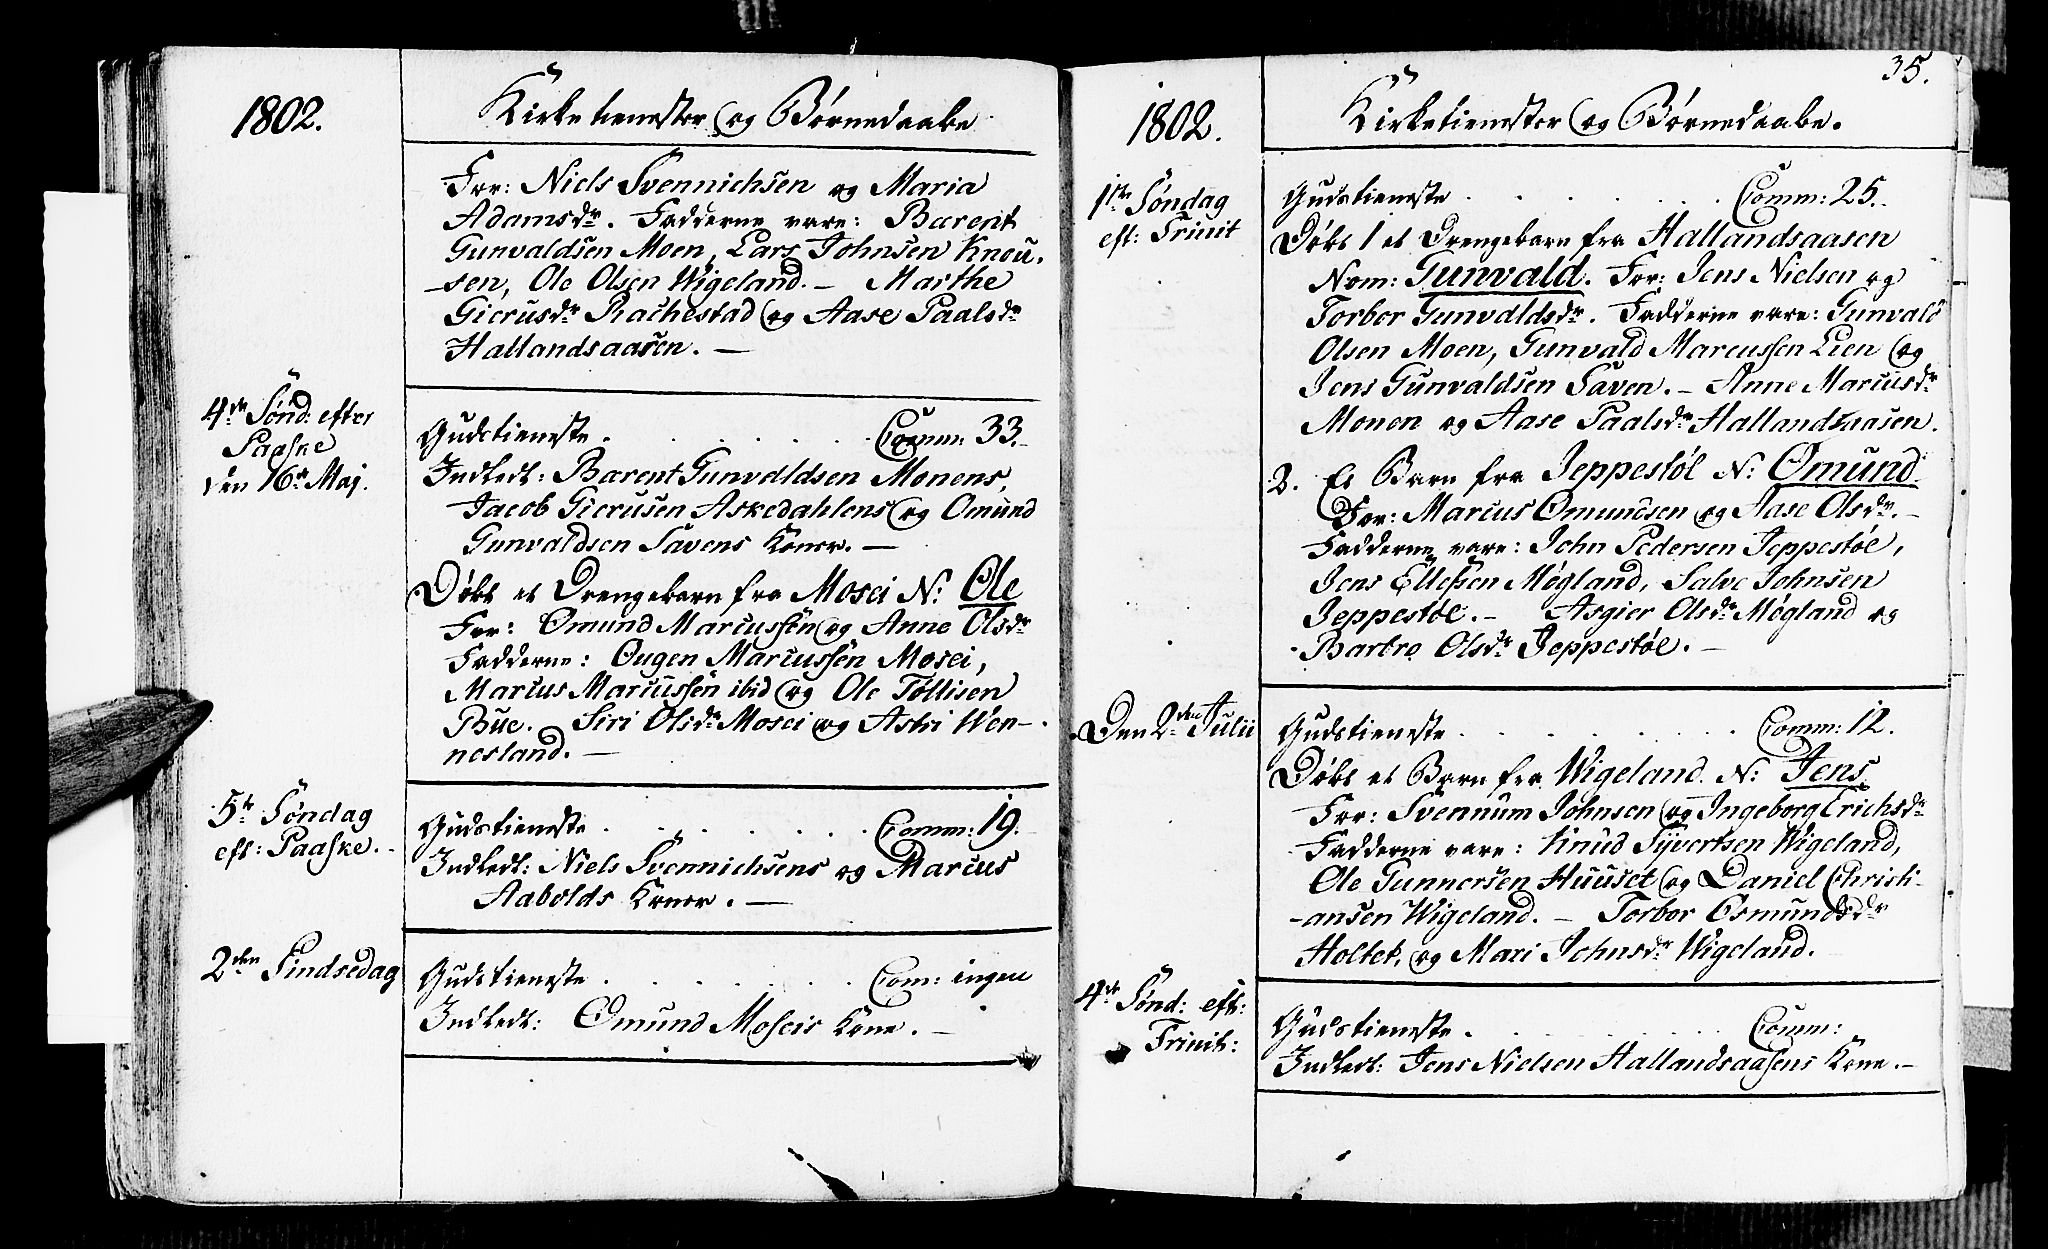 1802.
Kirketienester og Børnedaabe
For: Niels Svennichsen og Maria
Adamsdr. Fadderne vare: Barent
Gunvaldsen Moen, Lars Johnsen Knou-
-sen, Ole Olsen Wigeland. – Marthe
Gierusdr Rachestad og Aase Paalsdr
Hallandsaasen. –
4de Sønd: efter
Paaske
den 16de Maj.
Gudstieneste . . . . . . Comm: 33.
Indledt: Barent Gunvaldsen Monens,
Jacob Gierusen Askedahlens og Omund
Gunvaldsen Savens Koner. –
Døbt et Drengebarn fra Mosei N: Ole
For: Omund Marcussen og Anne Olsdr
Fadderne: Ougen Marcussen Mosei,
Marcus Marcussen ibid og Ole Tollisen
Bue. Siri Olsdr Mosei og Astri Wen-
nesland. –
5te Søndag
eft: Paaske.
Gudstieneste . . . . . . Comm: 19.
Indledt: Niels Svennichsens og Marcus
Aabolds Koner. –
2den Pindsedag
Gudstieneste . . . . . . Com: ingen
Indledt: Omund Moseis Kone. –
35.
1802.
Kirketienester og Børnedaabe.
1ste Søndag
eft: Trinit
Gudstieneste . . . . . . Comm: 25.
Døbt 1 et Drengebarn fra Hallandsaasen
Nom: Gunvald. For: Jens Nielsen og
Torbor Gunvaldsdr. Fadderne vare: Gunvald
Olsen Moen, Gunvald Marcussen Lien og
Jens Gunvaldsen Saven. – Anne Marcusdr
Monen og Aase Paalsdr Hallandsaasen.
2. Et Barn fra Jeppestøl N: Omund
For: Marcus Omundsen og Aase Olsdr. –
Fadderne vare: John Pedersen Jeppestøl,
Jens Ellefsen Møgland, Salve Johnsen
Jeppestøl. – Asgier Olsdr Møgland og
Barbro Olsdr Jeppestøl. –
Den 2den Julii
Gudstieneste . . . . . . Comm: 12.
Døbt et Barn fra Wigeland N: Jens
For: Svennum Johnsen og Ingeborg Erichsdr
Fadderne vare: Knud Syvertsen Wigeland,
Ole Gunnersen Huuset og Daniel Christi-
-ansen Wigeland. – Torbor Osmundsdr
Holtet, og Mari Johnsdr Wigeland.
4de Sønd: eft:
Trinit:
Gudstieneste . . . . . . Comm:
Indledt: Jens Nielsen Hallandsaasens Kone. –